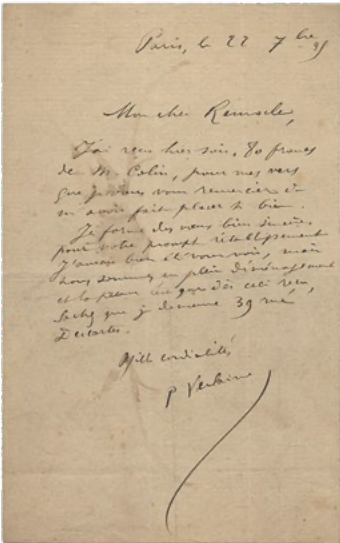 Paris, le 22 7bre 95
Mon cher Remacle,
J'ai reçu hier soir, 80 francs
de M. Colin, pour mes vers
que je vous remercier
m'avoir fait placer si bien.
Je forme des vœux bien sincères
pour votre prompt rétablissement
J'aurais bien été vous voir, mais
nous sommes en plein déménagement
et la
Sachez que je demeure 39 rue
Descartes.
Mille cordialités
P Verlaine